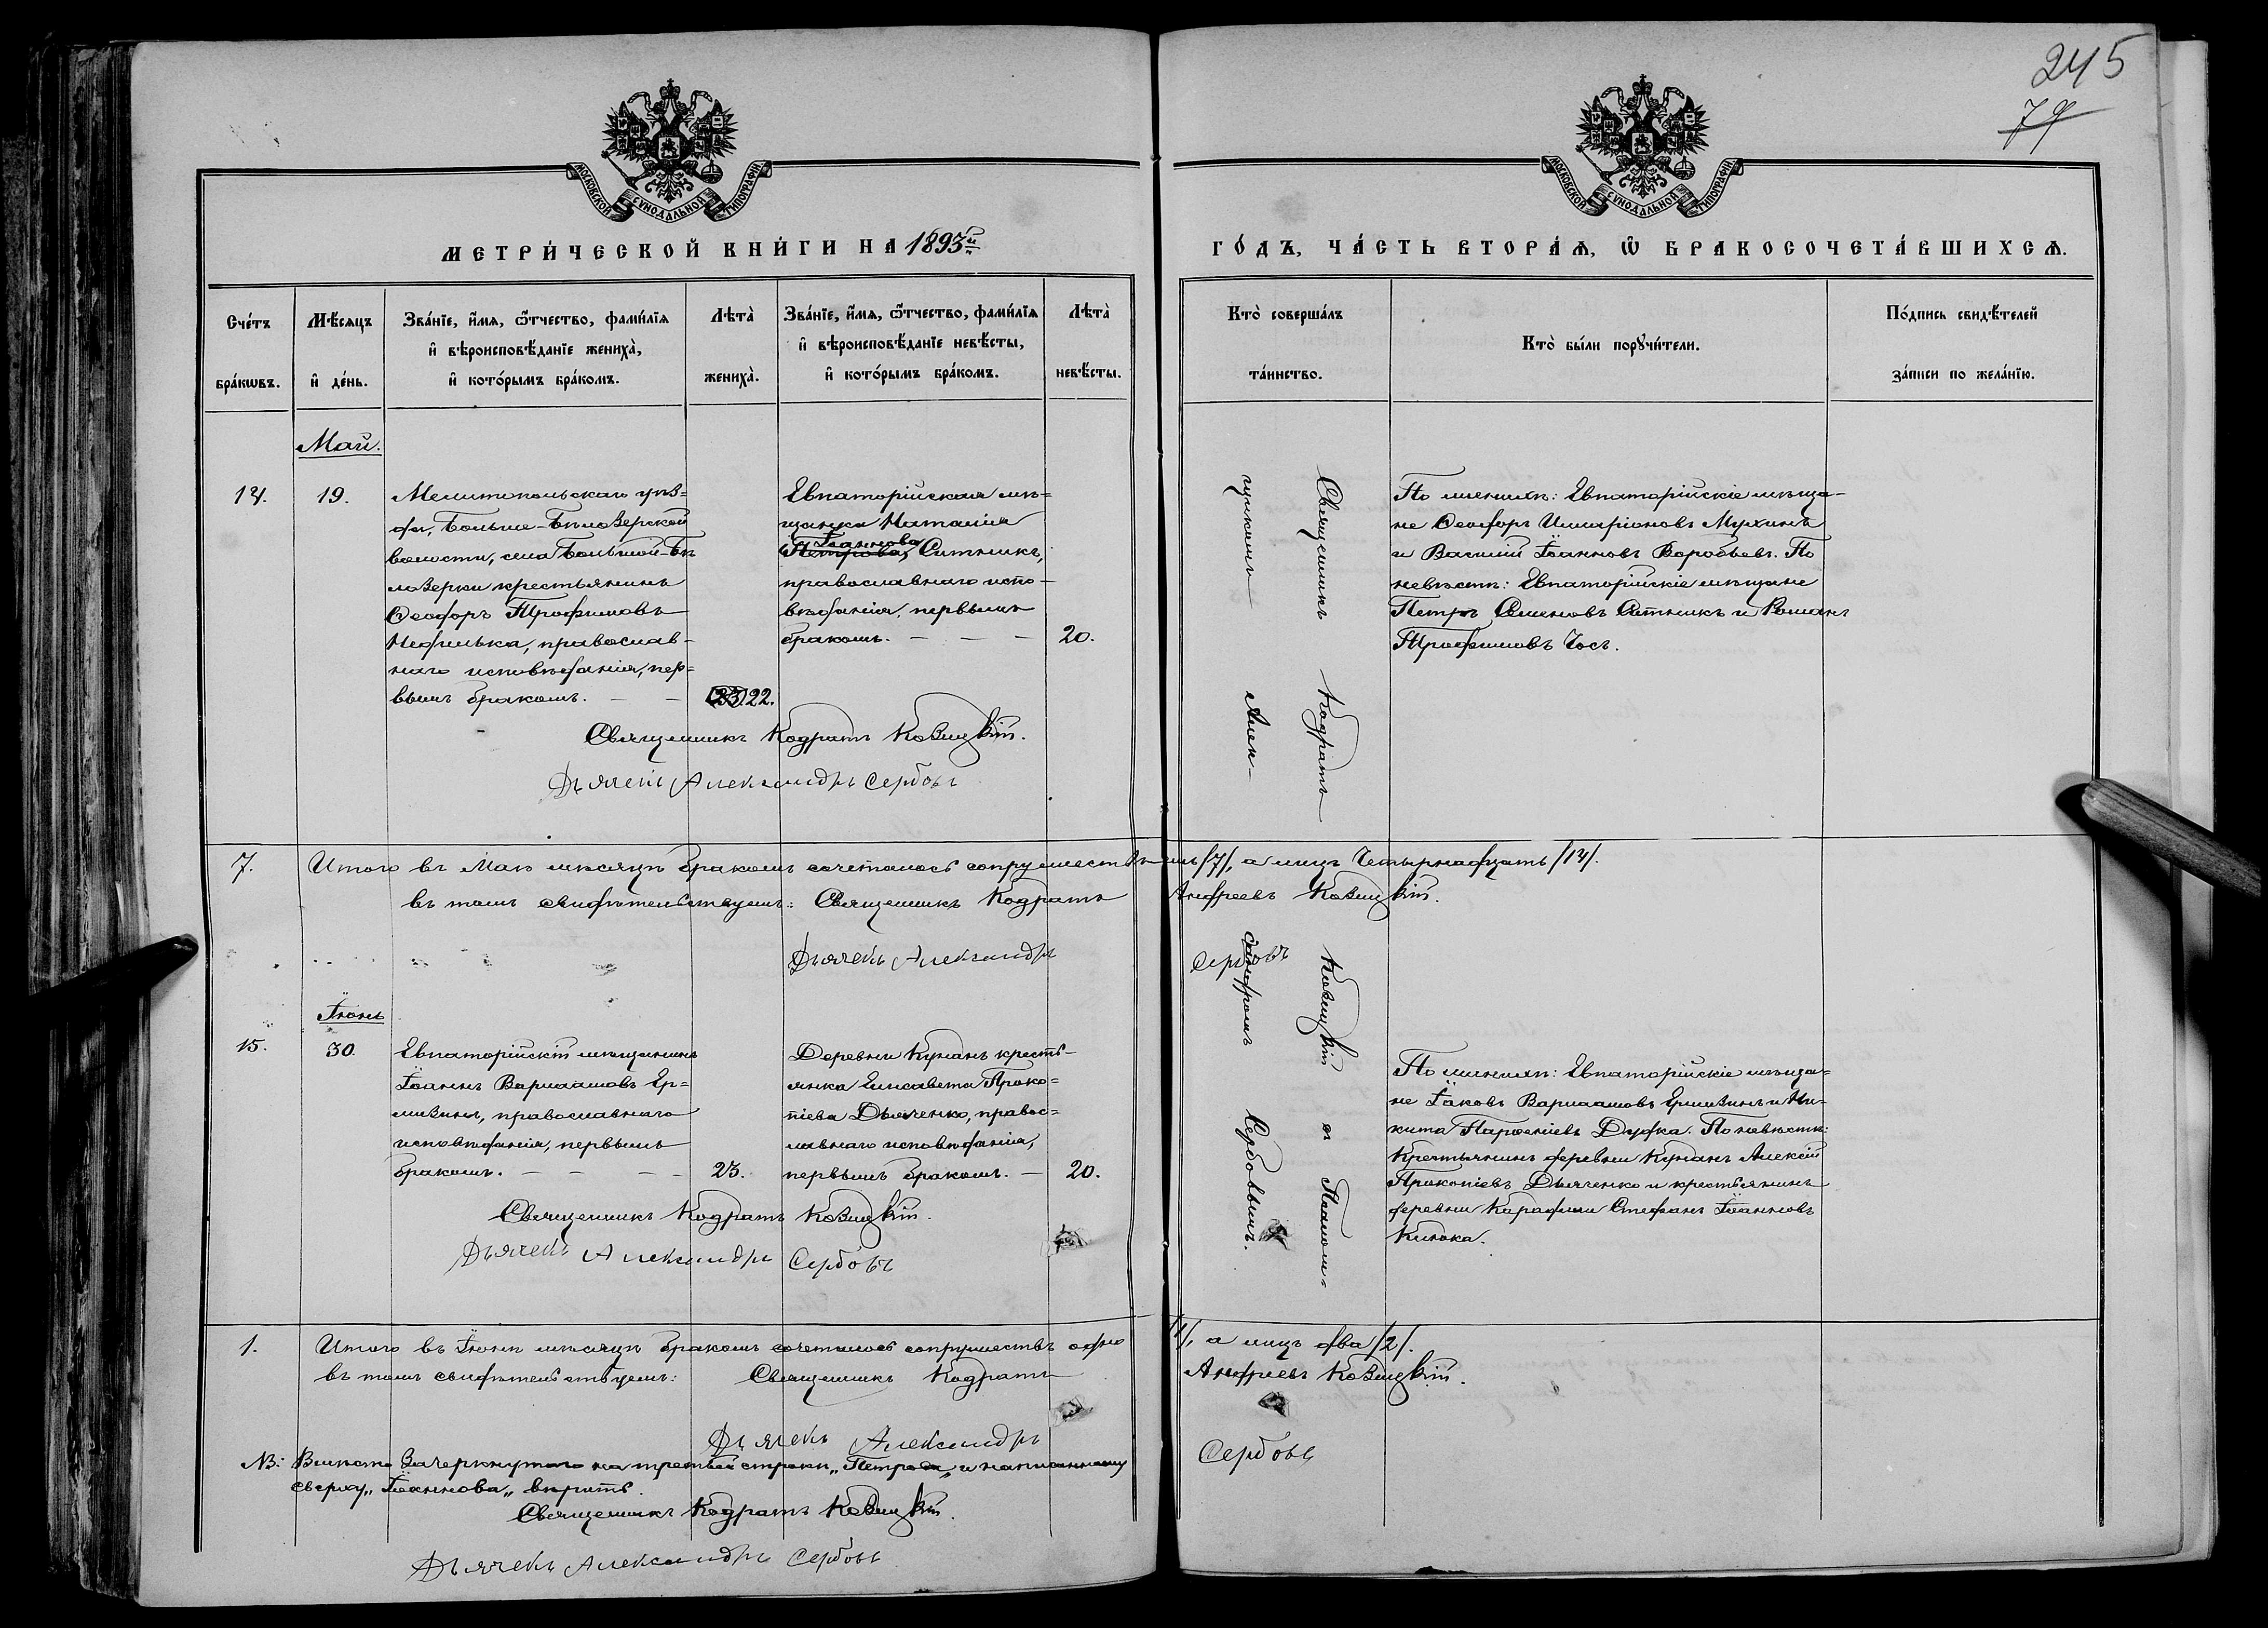 245
79
МОСКОВСКОЙ СѴНОДАЛЬНОЙ ТИПОГРАФІИ
МОСКОВСКОЙ СѴНОДАЛЬНОЙ ТИПОГРАФІИ
МЕТРИ́ЧЕСКОЙ КНИ́ГИ НА 1893й
ГО́ДЪ, ЧА́СТЬ ВТОРА́Ѧ, Ѡ҆ БРАКОСОЧЕТА́ВШИХСѦ.
Сче́тъ бра́кѡвъ.
Мѣ́сѧцъ и҆ де́нь.
Зва́нїе, и҆́мѧ, ѻ҆́тчество, фами́лїѧ и҆ вѣроисповѣ́данїе жениха̀, и҆ кото́рымъ бра́комъ.
Лѣта̀ жениха̀.
Зва́нїе, и҆́мѧ, ѻ҆́тчество, фами́лїѧ и҆ вѣроисповѣ́данїе невѣ́сты, и҆ кото́рымъ бра́комъ.
Лѣта̀ невѣ́сты.
Кто̀ соверша́лъ та́инство.
Кто̀ бы́ли порꙋчи́тели.
По́дпись свидѣ́телей за́писи по жела́нїю.
Май.
14.
19.
Мелитопольскаго уѣз=
да, Больше-Бѣлозерской
волости, села Большой-Бѣ
лозерки крестьянинъ
Ѳеодоръ Трофимовъ
Нефилька, православ-
наго исповѣданія, пер=
вымъ бракомъ.
(23) 22.
Евпаторійская мѣ=
щанка Наталія
Іоаннова
Петрова, Ситникъ,
православнаго испо-
вѣданія, первымъ
бракомъ.
20.
Священникъ Кодратъ
Козицкій и Псалом-
щикомъ Алек-
сандромъ Сербовымъ.
По женихѣ: Евпаторійскіе мѣща-
не Ѳеодоръ Иларіоновъ Мухинъ
и Василій Іоанновъ Воробьевъ. По
невѣстѣ: Евпаторійскіе мѣщане
Петръ Семеновъ Ситникъ и Романъ
Трофимовъ Чосъ.
Священникъ Кодратъ Козицкій.
Дьячекъ Александръ Сербовъ
7.
Итого въ Маѣ мѣсяцѣ бракомъ сочеталось супружествъ /7/, а лицъ Четырнадцать /14/.
въ томъ свидѣтельствуемъ: Священникъ Кодратъ Андреевъ Козицкій.
Дьячекъ Александръ Сербовъ
Іюнь
15.
30.
Евпаторійскій мѣщанинъ
Іоаннъ Варлаамовъ Ер=
мизинъ, православнаго
исповѣданія, первымъ
бракомъ.
23.
Деревни Кунанъ кресть-
янка Елисавета Проко=
піева Дьяченко, правос=
лавнаго исповѣданія,
первымъ бракомъ.
20.
По женихѣ: Евпаторійскіе мѣща=
не Іаковъ Варлаамовъ Ермизинъ и Ни-
кита Парѳеніевъ Дудка. По невѣстѣ:
Крестьянинъ деревни Кунанъ Алексій
Прокопіевъ Дьяченко и крестьянинъ
деревни Стефанъ Іоанновъ
Священникъ Кодратъ Козицкій.
Дьячекъ Александръ Сербовъ
1.
Итого въ Іюнѣ мѣсяцѣ бракомъ сочеталось супружествъ одно /1/, а лицъ два /2/.
въ томъ свидѣтельствуемъ: Священникъ Кодратъ Андреевъ Козицкій.
Дьячекъ Александръ Сербовъ
NB: Вмѣсто зачеркнутаго на третьей строкѣ „Петрова" и написанному
сверху „Іоаннова" вѣрить.
Священникъ Кодратъ Козицкій.
Дьячекъ Александръ Сербовъ